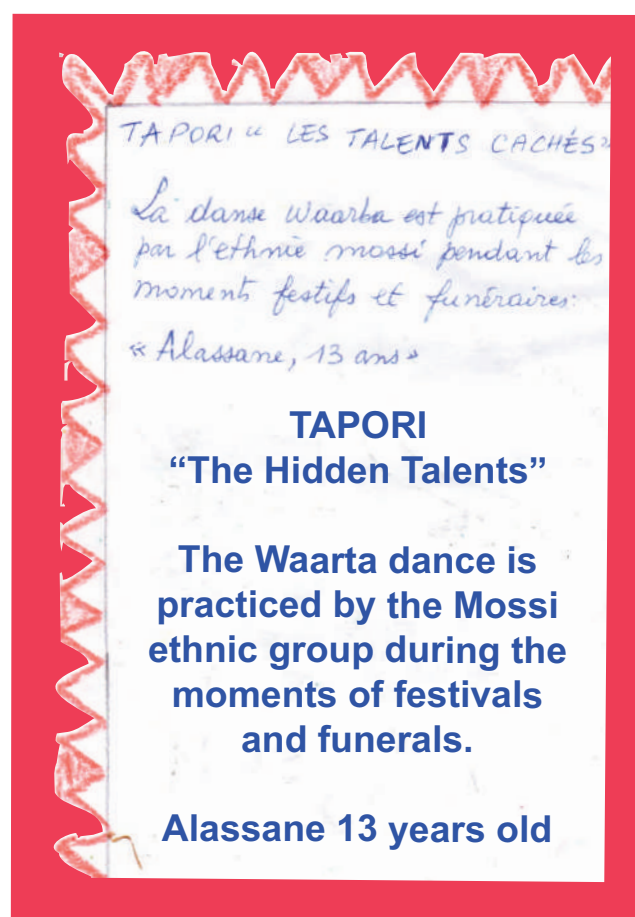 TAPORI « LES TALENTS CACHÉS »
La danse waarba est pratiquée
par l'ethnie mossi pendant les
moments festifs et funéraires.
« Alassane, 13 ans »
TAPORI
“The Hidden Talents”
The Waarta dance is
practiced by the Mossi
ethnic group during the
moments of festivals
and funerals.
Alassane 13 years old